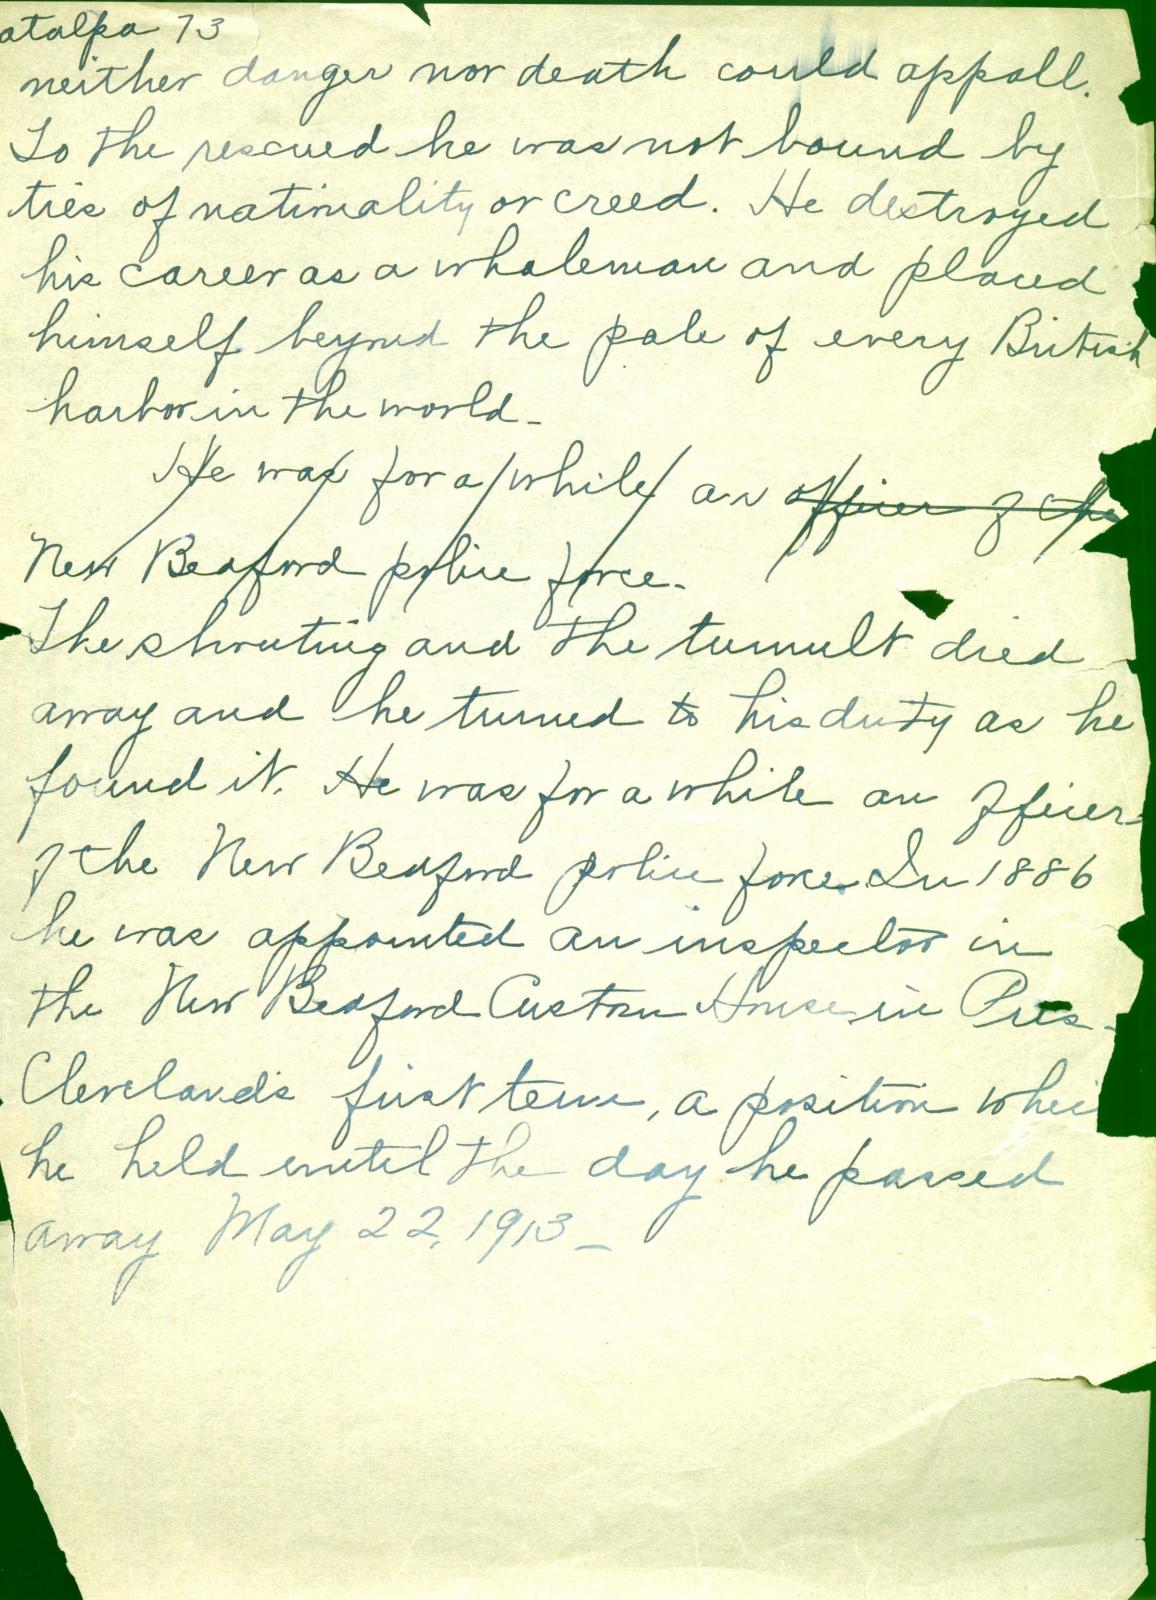 atalpa 73
neither danger nor death could appall.
To the rescued he was not bound by
ties of nationality or creed. He destroyed
his career as a whaleman and placed
himself beyond the pale of every British
harbor in the world_
He was for a while an officer of the
New Bedford police force.
The shouting and the tumult died
away and he turned to his duty as he
found it. He was for a while an officer
of the New Bedford police force. In 1886
he was appointed an inspector in
the New Bedford Custom House in Pres.
Cleveland's first term, a position whic
he held until the day he passed
away May 22, 1913_